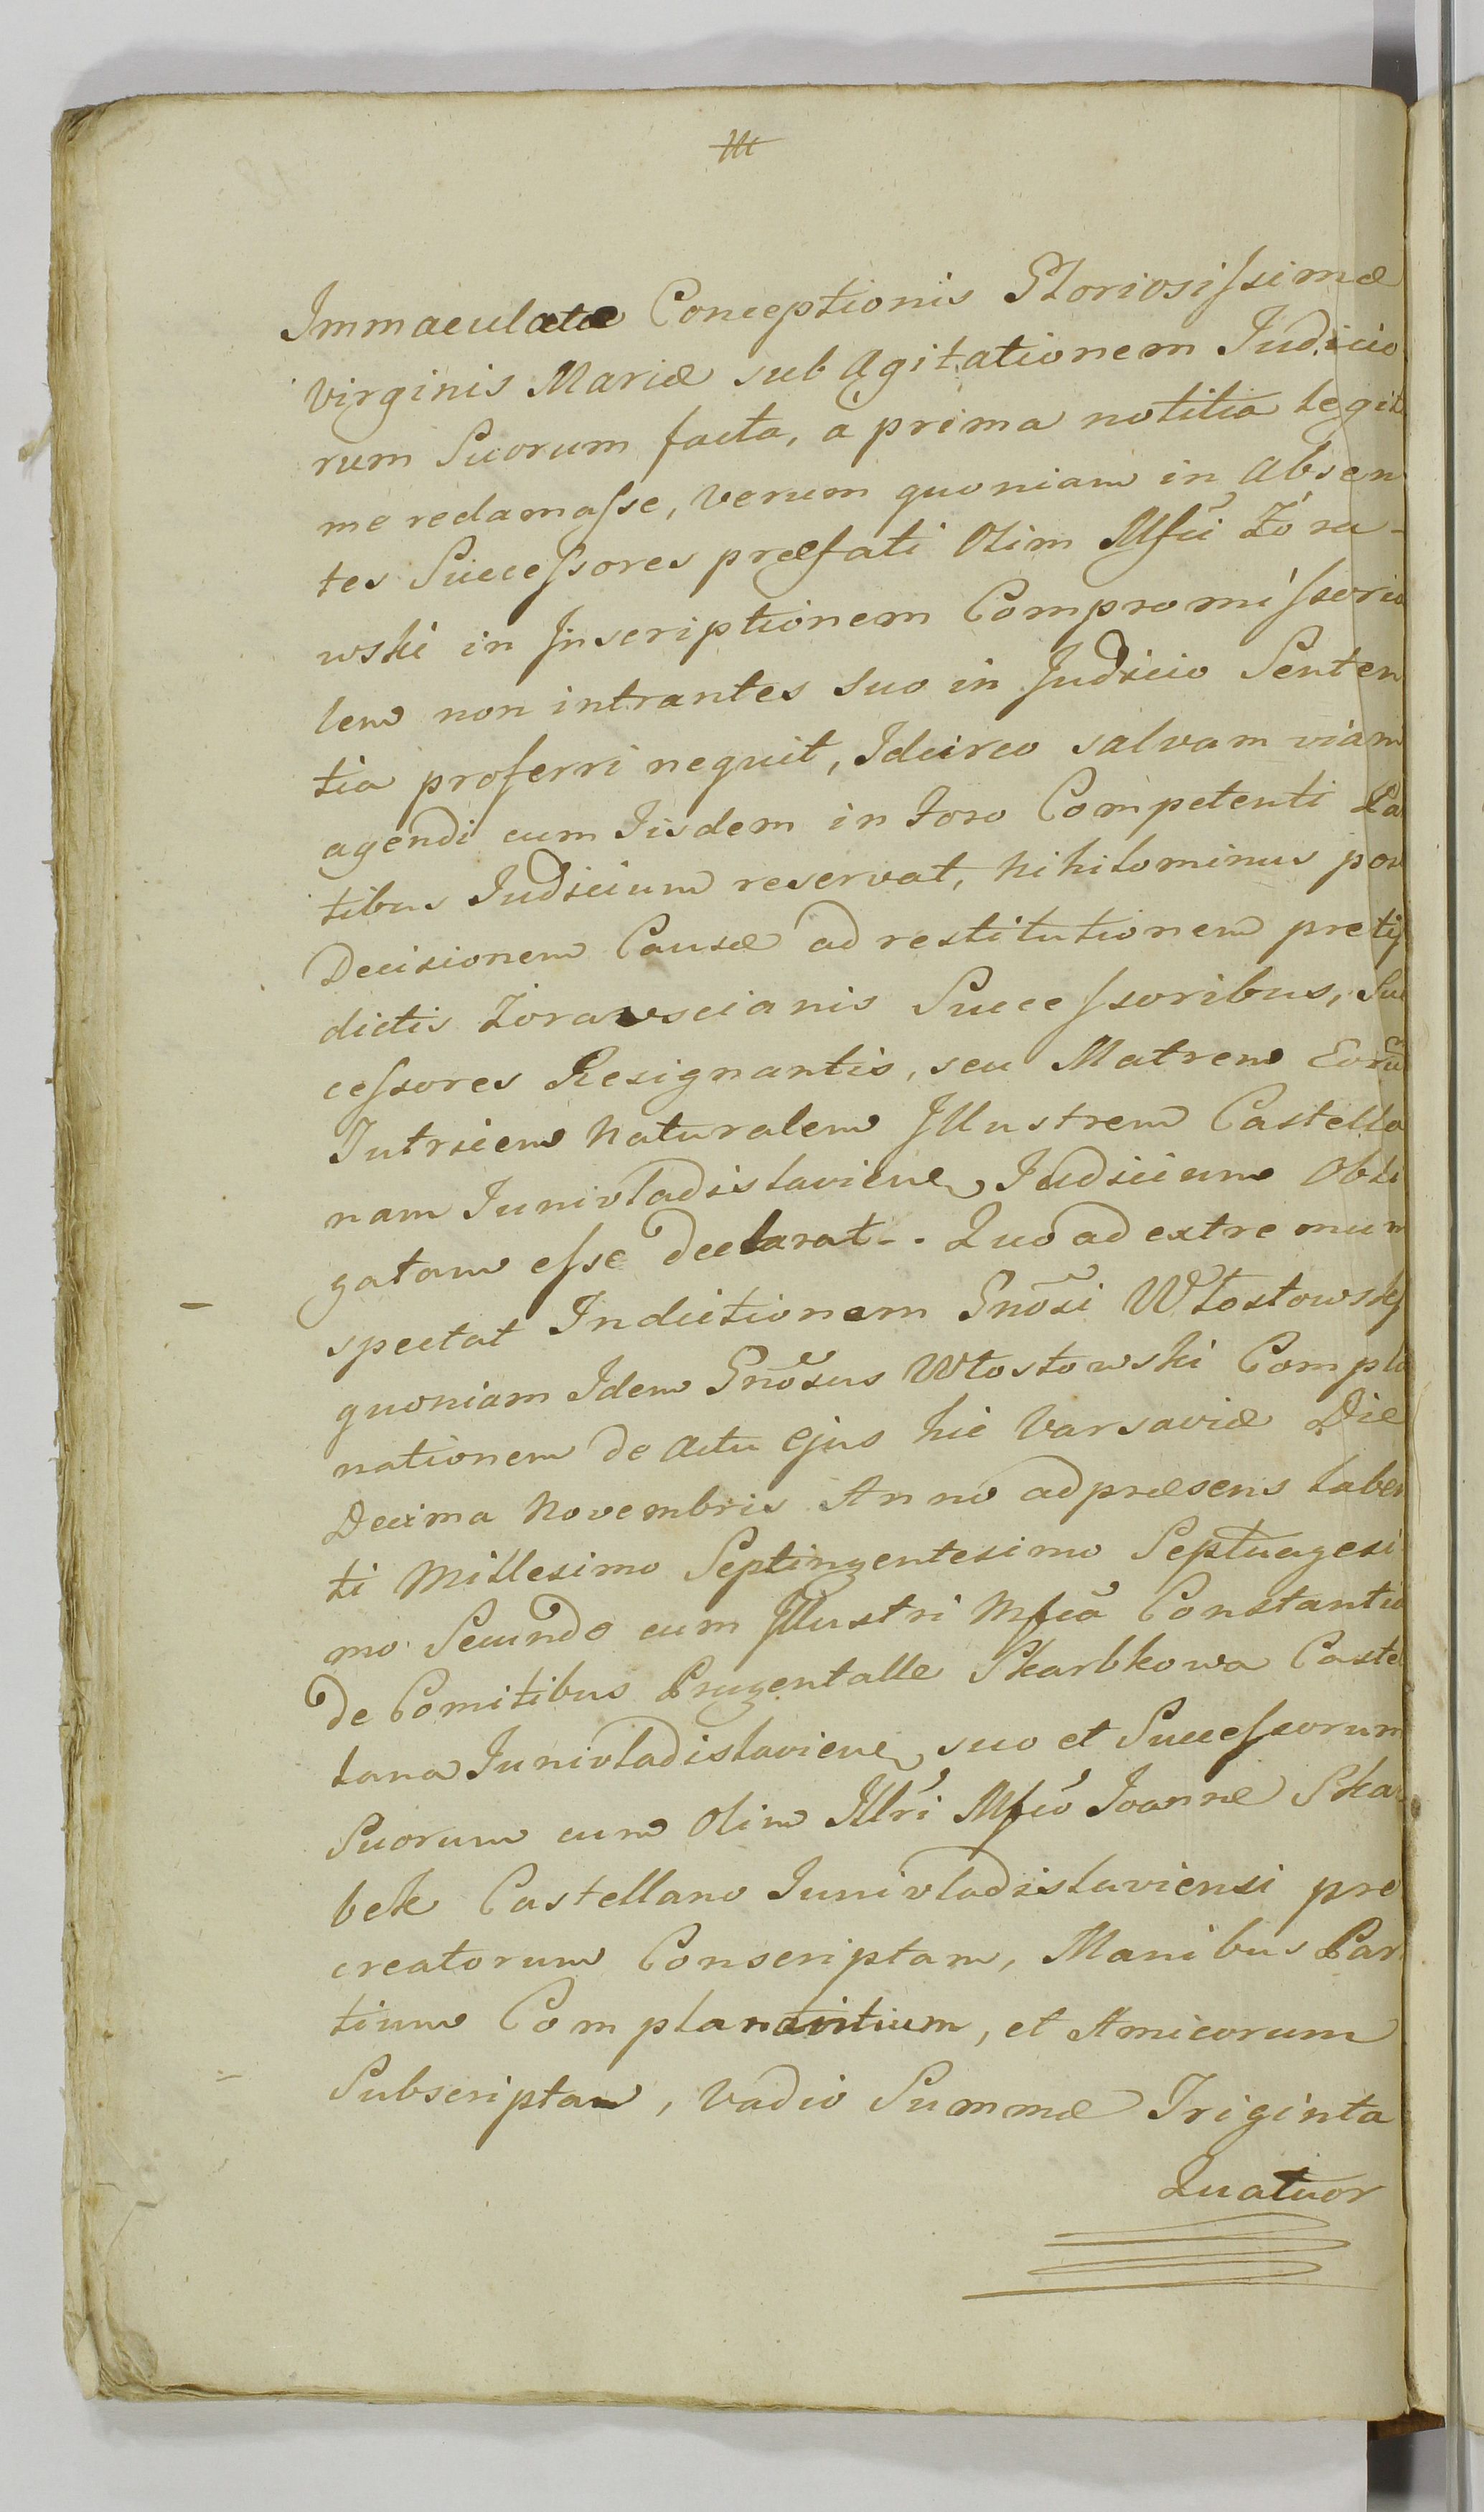 Immaculatæ Conceptionis Gloriosissimæ
Virginis Mariæ sub Agitationem Iudicio
rum Suorum facta, à prima notitia legit
me reclamasse, verum quoniam in Absen
tes Successores præfati Olim Mfci Żóra-
wski in Inscriptionem Compromissoria
lem non intrantes suo in Judicio Senten
tia proferri nequit, Idcirco salvam viam
agendi cum Iisdem in Foro Competenti Pa
tibus Iudicium reservat, nihilominus pos
Decisionem Causæ ad restitutionem pretij
dictis Żorawscianis Successoribus, Suc
cessores Resignantis, seu Matrem Eorũ
Tutricem Naturalem Illustrem Castella
nam Junivladislavien Iudicium Obli
gatam esse declarat -. Quo ad extremum
spectat Inductionem Gnõsi Włostowskj
quoniam Idem Gnõsus Włostowski Compla
nationem de Actu ejus hic Varsaviæ Die
Decima Novembris Anno ad præsens laben
ti Millesimo Septingentesimo Septuagesi
mo Secundo cum Illustri Mfcã Constantia
de Comitibus Prugentalle Skarbkowa Caste
lana Junivladislavien suo et Successorum
Suorum cum Olim Illri Mfcõ Joanne Skar
bek Castellano Junivladislaviensi pro
creatorum Conscriptam, Manibus Par
tium Complanantium, et Amicorum
Subscriptam, Vadio Summæ Triginta
Quatuor